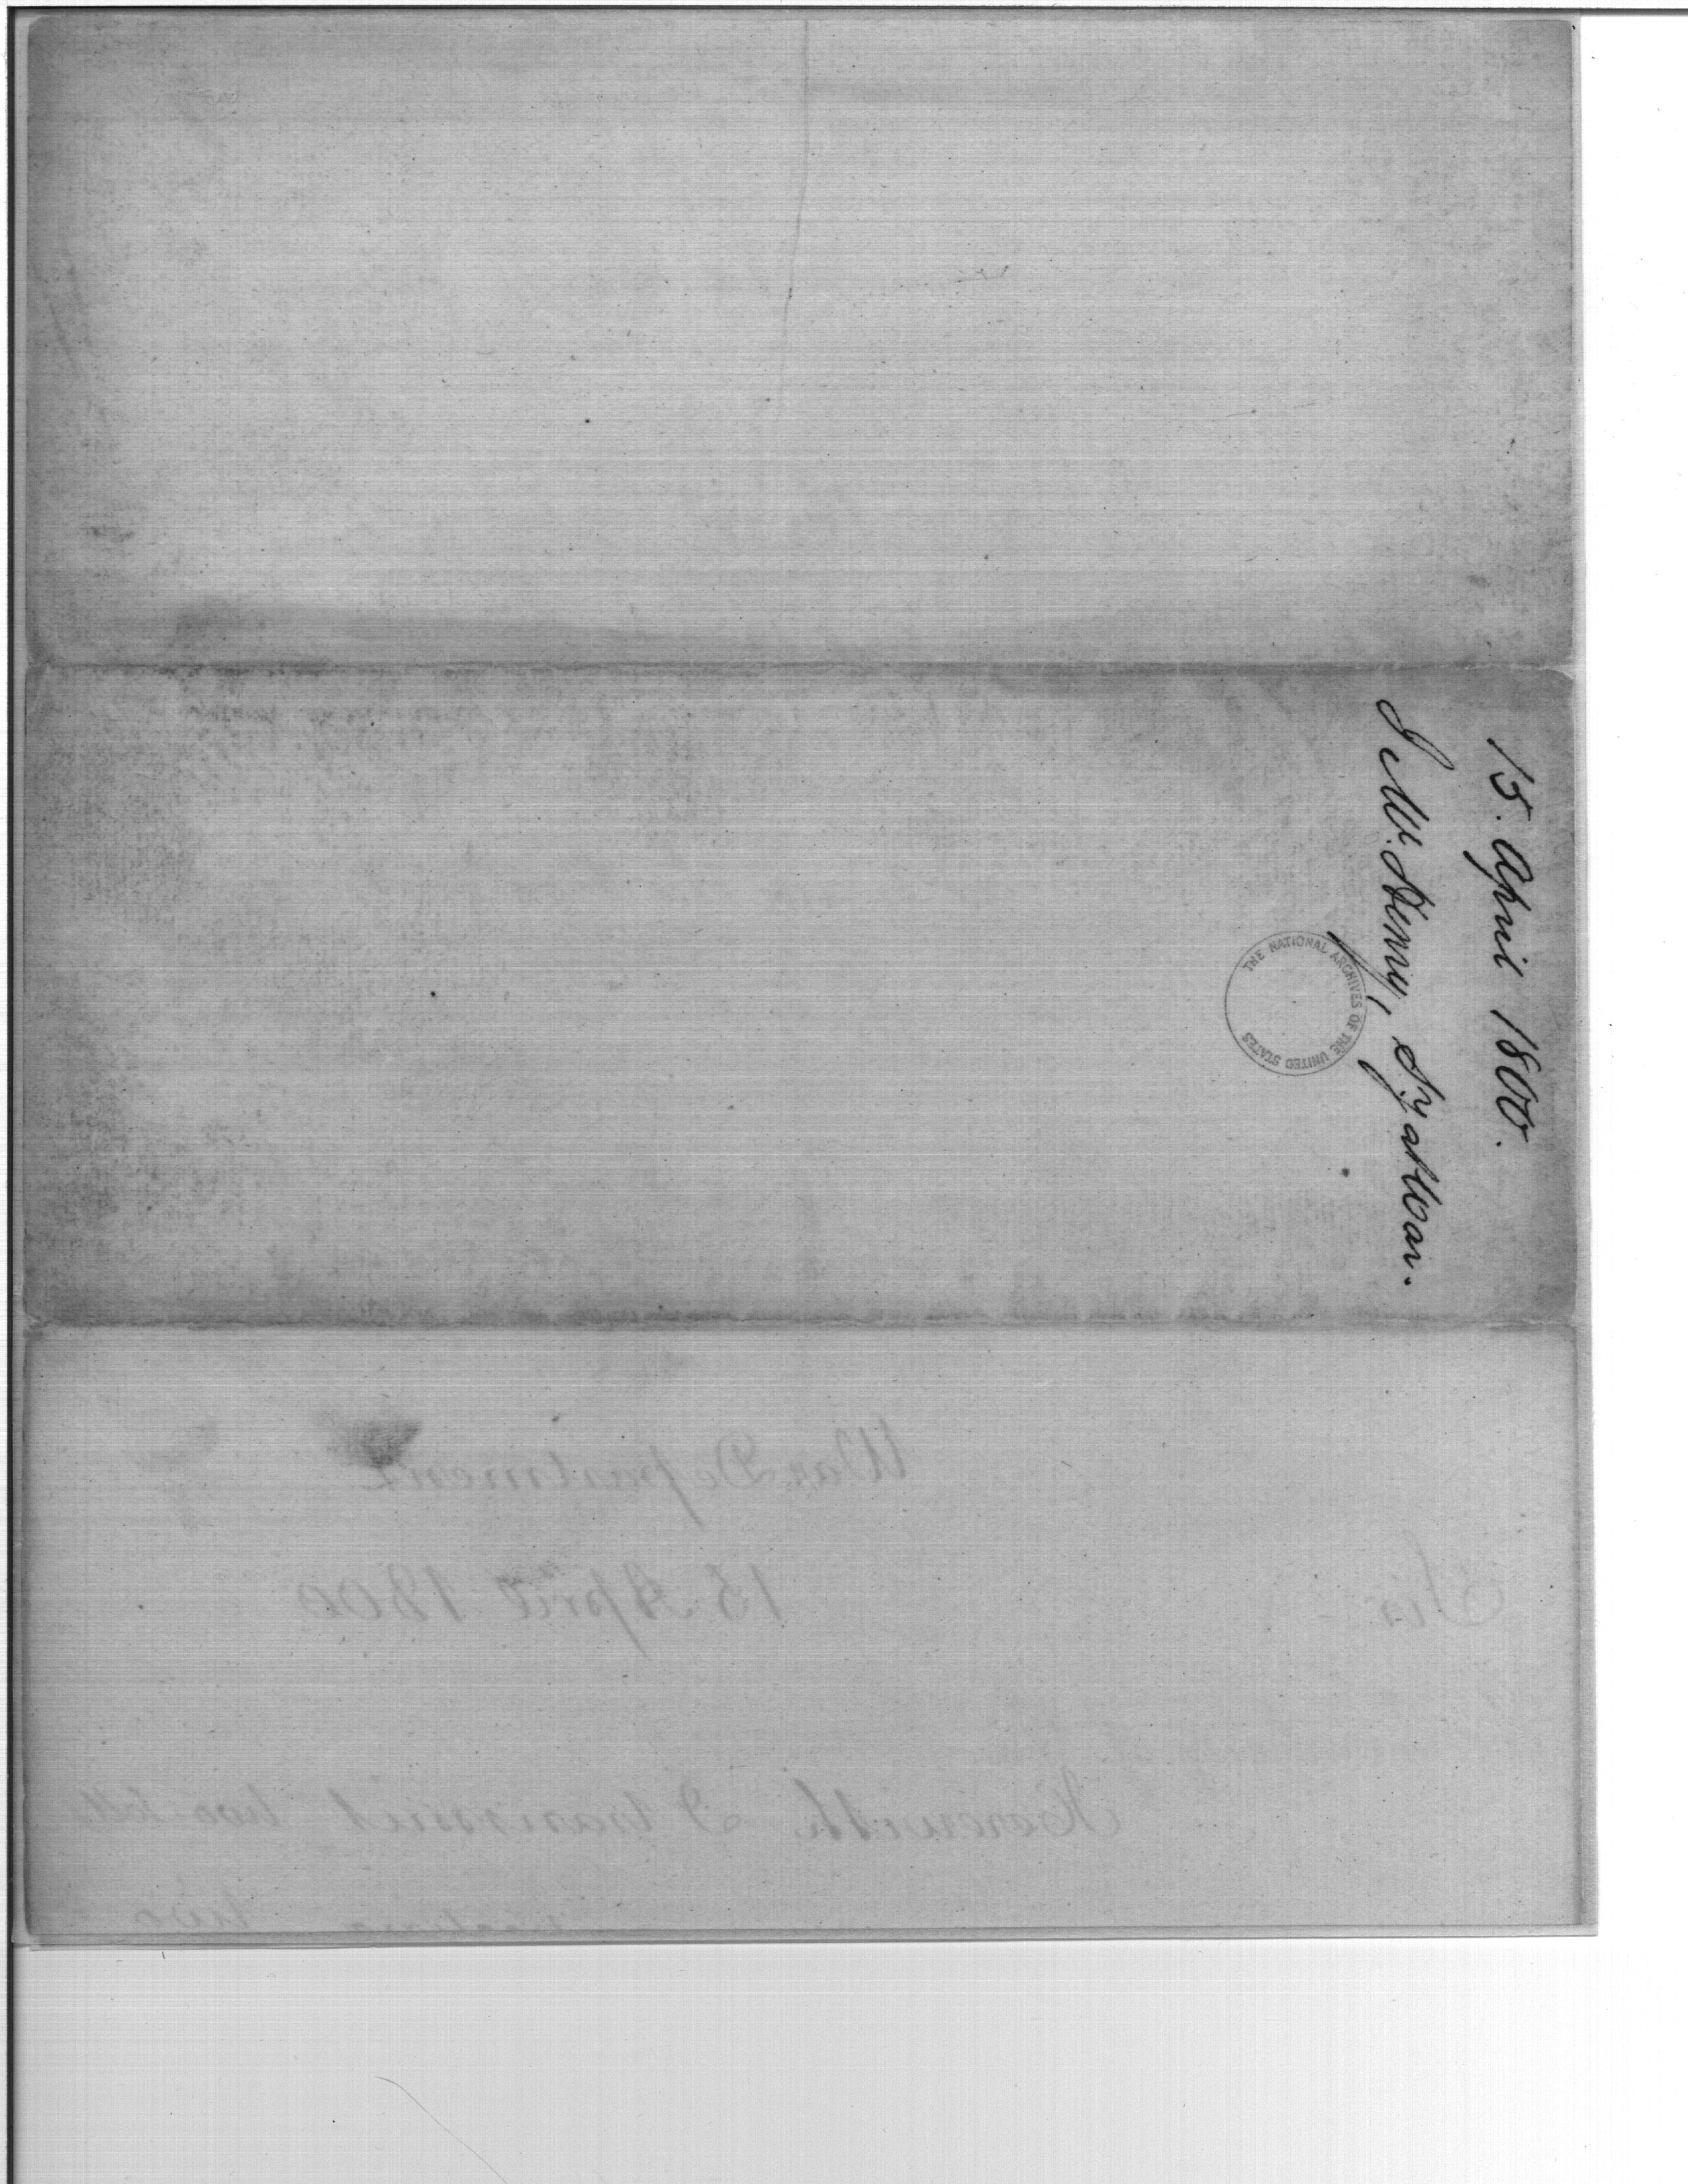 15. April 1800.
J McHenry, Sy at War.
THE NATIONAL ARCHIVES OF THE UNITED STATES
War Department
15 April 1800
Sir
Herewith I transmit two
two